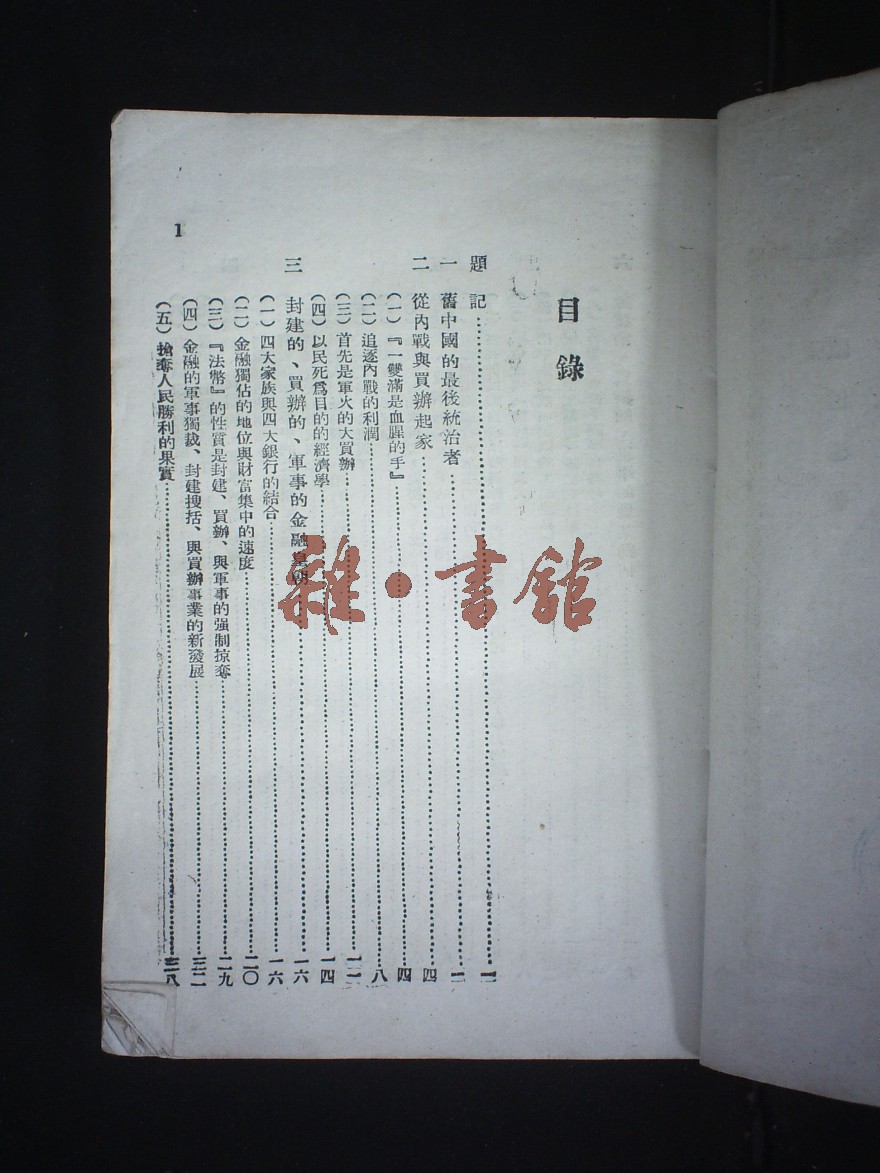 目錄
題記……一
一 舊中國的最後統治者……二
二 從內戰與買辦起家……四
(一)『一雙滿是血腥的手』……四
(二)追逐內戰的利潤……八
(三)首先是軍火的大買辦……一二
(四)以民死為目的的經濟學……一四
三 封建的、買辦的、軍事的金融皇朝……一六
(一)四大家族與四大銀行的結合……一六
(二)金融獨佔的地位與財富集中的速度……二〇
(三)『法幣』的性質是封建、買辦、與軍事的强制掠奪……二九
(四)金融的軍事獨裁、封建搜括、與買辦事業的新發展……三二
(五)搶奪人民勝利的果實……三八
1
雜·書館